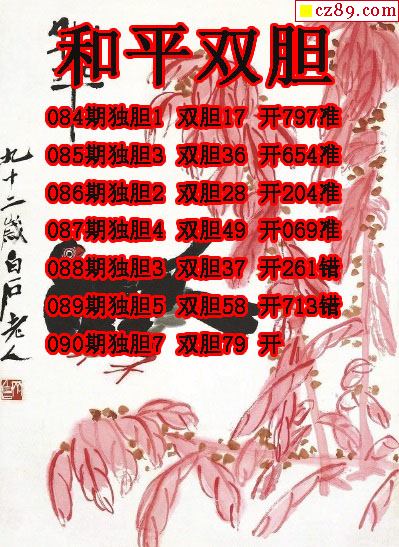 cz89.com
和平双胆
084期独胆1 双胆17 开797准
085期独胆3 双胆36 开654准
086期独胆2 双胆28 开204准
087期独胆4 双胆49 开069准
088期独胆3 双胆37 开261错
089期独胆5 双胆58 开713错
090期独胆7 双胆79 开
九十二岁白石老人